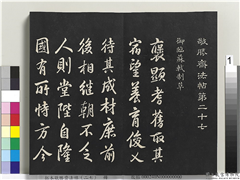 敬勝齋法帖第二十七
御臨蘇軾制草
褒顯耆舊取其
宿望養育俊乂
待其成材庶前
後相繼朝不乏
人則堂陛自隆
國有所恃方今